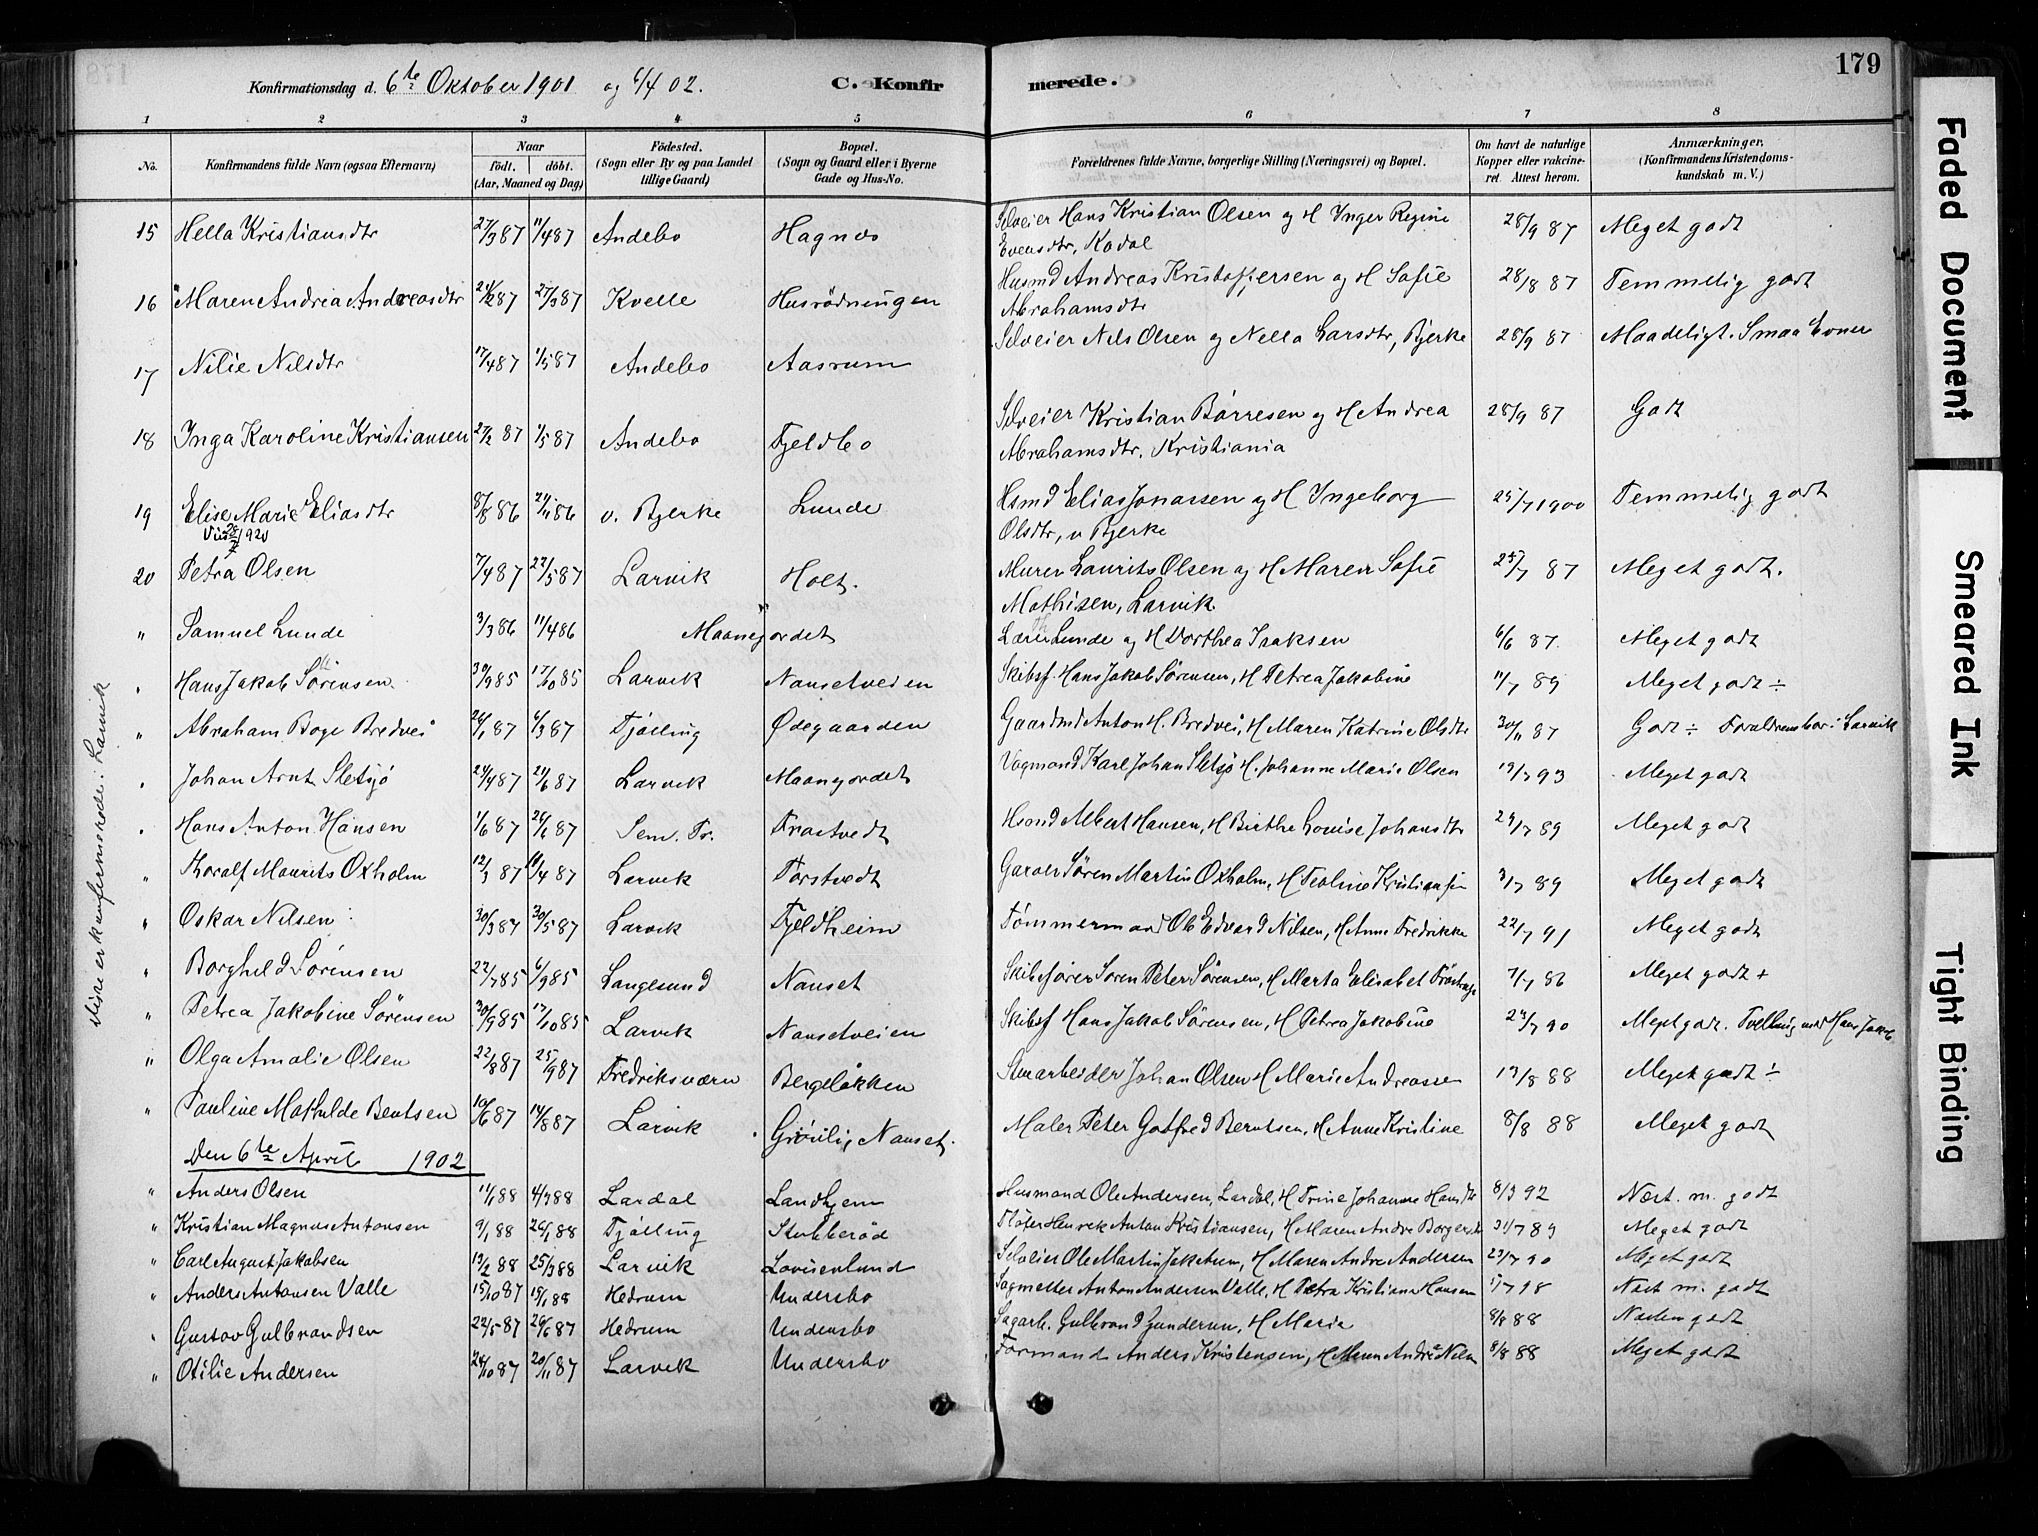 179
Konfirmationsdag d. 6te Oktober 1901 og 6/4 02. C. Konfirmerede.
1 2 3 4 5 6 7 8
No. Konfirmandens fulde Navn (ogsaa Efternavn) Naar født. døbt. (Aar, Maaned og Dag) Fødested. (Sogn eller By og paa Landet tillige Gaard) Bopæl. (Sogn og Gaard eller i Byerne Gade og Hus-No. Forældrenes fulde Navne, borgerlige Stilling (Næringsvei) og Bopæl. Om havt de naturlige Kopper eller vakcineret Attest herom. Anmærkninger. (Konfirmandens Kristendomskundskab m. V.)
15 Hella Kristiansdtr 27/3 87 11/4 87 Andebo Hagnæs Selveier Hans Kristian Olsen og H Inger Regine Evensdtr, Kodal 28/9 87 Meget godt
16 Maren Andrea Andreasdtr 21/2 87 27/3 87 Kvelle Husrödningen Husmd Andreas Kristoffersen og H Sofie Abrahamsdtr 28/8 87 Temmelig godt
17 Nilie Nilsdtr 17/4 87 1/5 87 Andebo Aasrum Selveier Nils Olsen og Nella Larsdtr, Bjerke 28/9 87 Maadeligt. Smaa Evner
18 Inga Karoline Kristiansen 27/2 87 1/5 87 Andebo Fjeldbo Selveier Kristian Börresen og H Andrea Abrahamsdtr. Kristiania 28/9 87 Godt
19 Elise Marie Eliasdtr 8/8 86 21/11 86 v. Bjerke Lunde Hsmd Elias Jonassen og H Ingeborg Olsdtr, v Bjerke 25/7 1900 Temmelig godt
1920
20 Petra Olsen 7/4 87 22/5 87 Larvik Holt. Murer Laurits Olsen og H Maren Sofie Mathisen, Larvik 25/7 87 Meget godt.
" Samuel Lunde 3/3 86 11/4 86 Maanejordet Lærer Lunde og H Dorthea Isaksen 6/6 87. Meget godt
" Hans Jakob Sörensen 30/9 85 17/10 85 Larvik Nansetveien Skibsf. Hans Jakob Sørensen, H Petrea Jakobine 11/7 89 Meget godt ÷
" Abraham Boge Bredvei 26/1 87 6/3 87 Tjølling Ødegaarden Gaardmd Anton H. Bredvei, H Maren Katrine Olsdtr 30/11 87 Godt ÷ Forældrene bor i Larvik
" Johan Arnt Sletsjö 24/4 87 21/6 87 Larvik Maanejordet Vognmand Karl Johan Sletsjø H. Johanne Marie Olsen 19/7 93 Meget godt
" Hans Anton Hansen 1/6 87 26/6 87 Sem. Tr. Frostvedt Hsmd Albert Hansen, H Birthe Louise Johansdtr 29/7 89 Meget godt
" Thoralf Maurits Oxholm 12/3 87 11/4 87 Larvik Torstvedt Garver Sören Martin Oxholm, H Teoline Kristiansen 3/7 89 Meget godt
" Oskar Nilsen 30/3 87 30/5 87 Larvik Fjeldheim Tömmermand Ole Edvard Nilsen, H Anne Fredrikke 22/7 91 Meget godt
" Borghild Sörensen 22/7 85 6/9 85 Langesund Nanset Skibsfører Søren Peter Sørensen, H Marta Elisabet 7/7 86 Meget godt +
" Petrea Jakobine Sörensen 30/9 85 17/10 85 Larvik Nansetveien Skibsf Hans Jakob Sørensen, H Petrea Jakobine 23/7 90 Meget godt. Tvilling med Hans Jakob
" Olga Amalie Olsen 22/8 87 25/9 87 Fredriksværn Bergeløkken Stuarbeider Johan Olsen H Marie Andreassen 13/8 88 Meget godt ÷
" Pauline Mathilde Bentsen 10/6 87 14/8 87 Larvik Grönli, Nanset. Maler Peter Gotfred Berntsen, H Anne Kristine 8/8 88 Meget godt
Den 6te April 1902
" Anders Olsen 11/1 88 4/3 88 Lardal Landhjem Husmand Ole Andersen, Lardal, H Trine Johanne Hansdtr 8/3 92 Næst. m. godt
" Kristian Magnus Antonsen 9/1 88 26/1 88 Tjølling Stubberød Fløter Henrik Anton Kristiansen, H Maren Andre Borgersdtr 31/7 89 Meget godt
" Carl August Jakobsen 13/2 88 25/3 88 Larvik Lovisenlund Selveier Ole Martin Jakobsen, H Maren Andre Andersen 23/7 90 Meget godt
" Anders Antonsen Valle 15/10 87 15/1 88 Hedrum Undersbo Sagmester Anton Andersen Valle, H Petra Kristiana Hansen 1/7 98 Næst m. godt
" Gustav Gulbrandsen 22/5 87 26/6 87 Hedrum Undersbo Sagarb. Gulbrand Gundersen, H Maria 8/8 88 Næsten godt
" Otilie Andersen 24/10 87 20/11 87 Larvik Undersbo Formand Anders Kristensen, H Maren Andre Nilsen 8/8 88 Meget godt
disse er konfirmerede i Larvik
Faded Document
Smeared Ink
Tight Binding